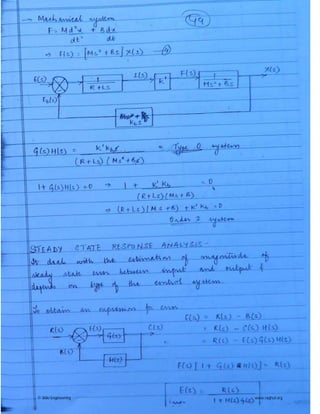 → Mechanical system
49
F = Md²x + Bdx
dt² dt
⇒ F(s) = [Ms² + Bs] X(s) —
E(s)
1
R + Ls
I(s)
K'
F(s)
1
Ms² + Bs
X(s)
Eb(s)
Kb s
G(s)H(s) = K'Kb s = Type 0 system
(R+Ls) (Ms² + Bs)
1 + G(s)H(s) = 0 ⇒ 1 + K' Kb = 0
(R+Ls)(Ms+B)
⇒ (R+Ls)(Ms+B) + K'Kb = 0
Order 2 system
STEADY STATE RESPONSE ANALYSIS -
It deals with the estimation of magnitude of
steady state error between input and output &
depends on type of the control system.
To obtain an expression for error
E(s) = R(s) - B(s)
R(s)
E(s)
G(s)
C(s)
= R(s) - C(s) H(s)
= R(s) - E(s)G(s)H(s)
B(s)
H(s)
E(s) [1 + G(s)H(s)] = R(s)
E(s) = R(s)
1 + H(s)G(s)